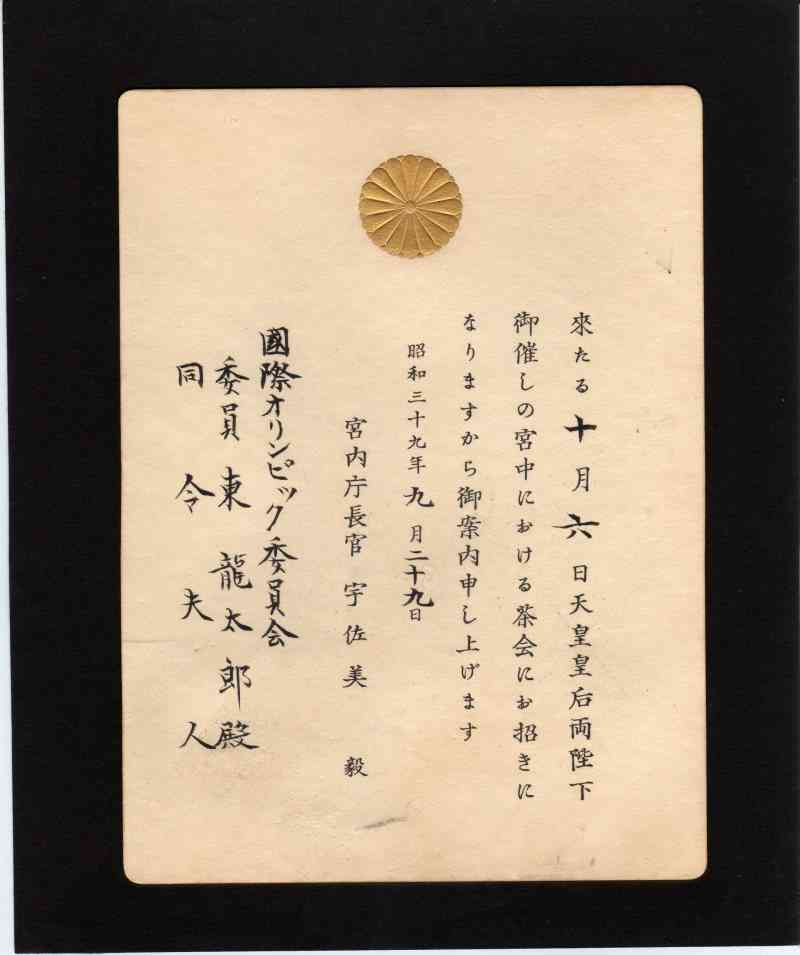 來たる十月六日天皇皇后両陛下
御催しの宮中における茶会にお招きに
なりますから御案内申し上げます
昭和三十九年九月二十九日
宮内庁長官 宇佐美 毅
國際オリンピック委員会
委員 東 龍太郎殿
同 令夫人